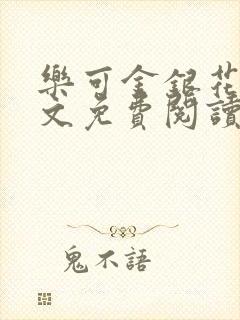 樂可金銀花
文免費閱讀
鬼不語